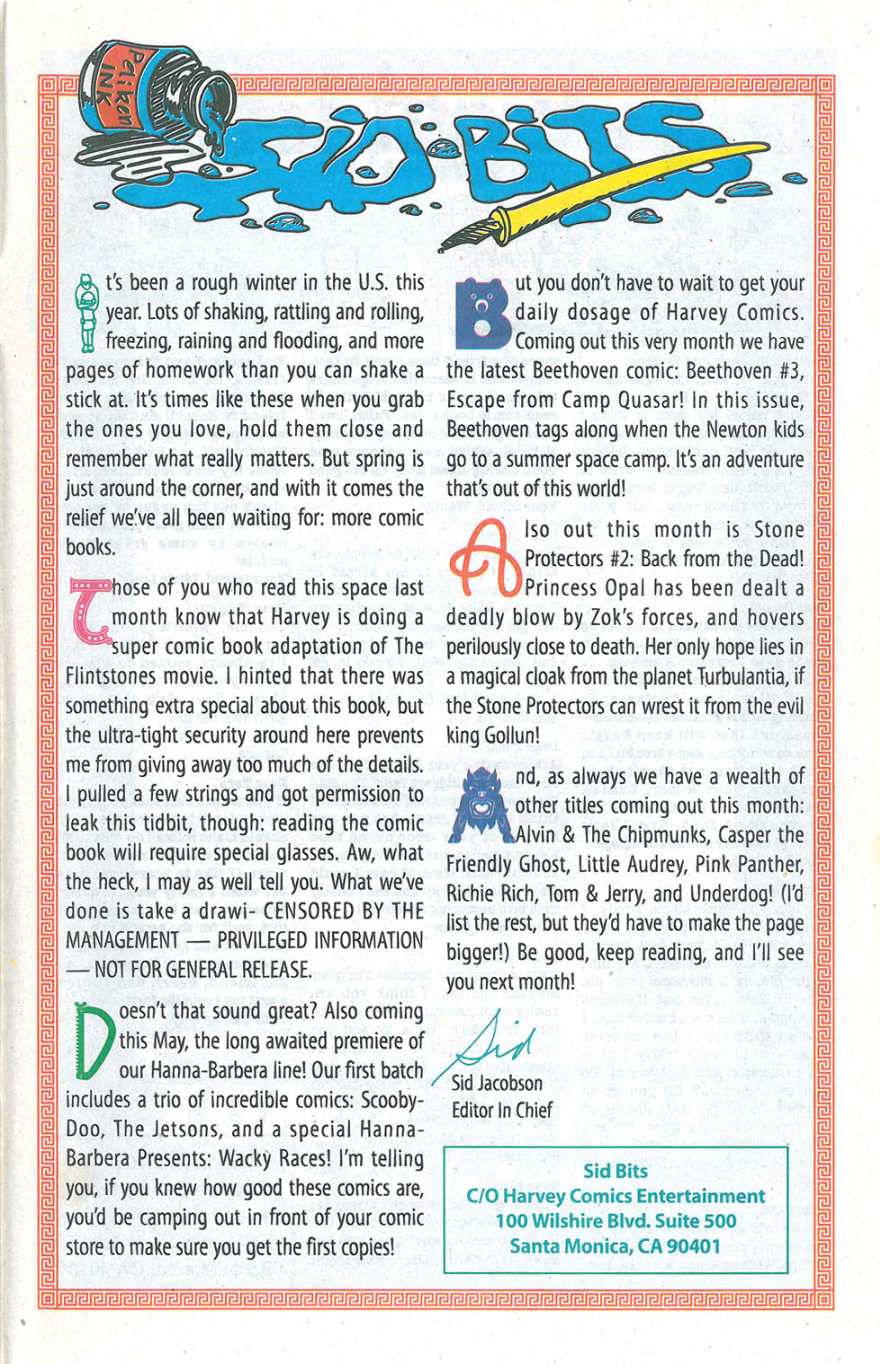 Pelikan
INK
SID BITS
It's been a rough winter in the U.S. this
year. Lots of shaking, rattling and rolling,
freezing, raining and flooding, and more
pages of homework than you can shake a
stick at. It's times like these when you grab
the ones you love, hold them close and
remember what really matters. But spring is
just around the corner, and with it comes the
relief we've all been waiting for: more comic
books.
Those of you who read this space last
month know that Harvey is doing a
super comic book adaptation of The
Flintstones movie. I hinted that there was
something extra special about this book, but
the ultra-tight security around here prevents
me from giving away too much of the details.
I pulled a few strings and got permission to
leak this tidbit, though: reading the comic
book will require special glasses. Aw, what
the heck, I may as well tell you. What we've
done is take a drawi- CENSORED BY THE
MANAGEMENT — PRIVILEGED INFORMATION
— NOT FOR GENERAL RELEASE.
Doesn't that sound great? Also coming
this May, the long awaited premiere of
our Hanna-Barbera line! Our first batch
includes a trio of incredible comics: Scooby-
Doo, The Jetsons, and a special Hanna-
Barbera Presents: Wacky Races! I'm telling
you, if you knew how good these comics are,
you'd be camping out in front of your comic
store to make sure you get the first copies!
But you don't have to wait to get your
daily dosage of Harvey Comics.
Coming out this very month we have
the latest Beethoven comic: Beethoven #3,
Escape from Camp Quasar! In this issue,
Beethoven tags along when the Newton kids
go to a summer space camp. It's an adventure
that's out of this world!
Also out this month is Stone
Protectors #2: Back from the Dead!
Princess Opal has been dealt a
deadly blow by Zok's forces, and hovers
perilously close to death. Her only hope lies in
a magical cloak from the planet Turbulantia, if
the Stone Protectors can wrest it from the evil
king Gollun!
And, as always we have a wealth of
other titles coming out this month:
Alvin & The Chipmunks, Casper the
Friendly Ghost, Little Audrey, Pink Panther,
Richie Rich, Tom & Jerry, and Underdog! (I'd
list the rest, but they'd have to make the page
bigger!) Be good, keep reading, and I'll see
you next month!
Sid
Sid Jacobson
Editor In Chief
Sid Bits
C/O Harvey Comics Entertainment
100 Wilshire Blvd. Suite 500
Santa Monica, CA 90401